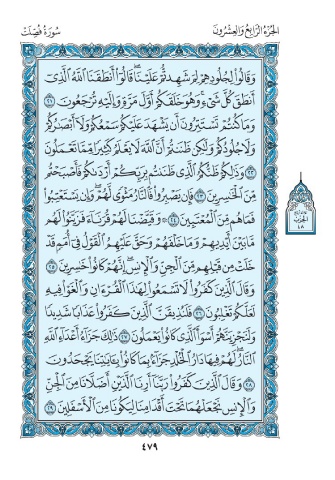 الجزء الرابع والعشرون
سورة فصلت
وَقَالُوا۟ لِجُلُودِهِمْ لِمَ شَهِدتُّمْ عَلَيْنَا ۖ قَالُوٓا۟ أَنطَقَنَا ٱللَّهُ ٱلَّذِىٓ
أَنطَقَ كُلَّ شَىْءٍ وَهُوَ خَلَقَكُمْ أَوَّلَ مَرَّةٍ وَإِلَيْهِ تُرْجَعُونَ ٢١
وَمَا كُنتُمْ تَسْتَتِرُونَ أَن يَشْهَدَ عَلَيْكُمْ سَمْعُكُمْ وَلَآ أَبْصَٰرُكُمْ
وَلَا جُلُودُكُمْ وَلَٰكِن ظَنَنتُمْ أَنَّ ٱللَّهَ لَا يَعْلَمُ كَثِيرًا مِّمَّا تَعْمَلُونَ
٢٢ وَذَٰلِكُمْ ظَنُّكُمُ ٱلَّذِى ظَنَنتُم بِرَبِّكُمْ أَرْدَىٰكُمْ فَأَصْبَحْتُم
مِّنَ ٱلْخَٰسِرِينَ ٢٣ فَإِن يَصْبِرُوا۟ فَٱلنَّارُ مَثْوًى لَّهُمْ ۖ وَإِن يَسْتَعْتِبُوا۟
فَمَا هُم مِّنَ ٱلْمُعْتَبِينَ ٢٤ ۞ وَقَيَّضْنَا لَهُمْ قُرَنَآءَ فَزَيَّنُوا۟ لَهُم
مَّا بَيْنَ أَيْدِيهِمْ وَمَا خَلْفَهُمْ وَحَقَّ عَلَيْهِمُ ٱلْقَوْلُ فِىٓ أُمَمٍ قَدْ
خَلَتْ مِن قَبْلِهِم مِّنَ ٱلْجِنِّ وَٱلْإِنسِ ۖ إِنَّهُمْ كَانُوا۟ خَٰسِرِينَ ٢٥
وَقَالَ ٱلَّذِينَ كَفَرُوا۟ لَا تَسْمَعُوا۟ لِهَٰذَا ٱلْقُرْءَانِ وَٱلْغَوْا۟ فِيهِ
لَعَلَّكُمْ تَغْلِبُونَ ٢٦ فَلَنُذِيقَنَّ ٱلَّذِينَ كَفَرُوا۟ عَذَابًا شَدِيدًا
وَلَنَجْزِيَنَّهُمْ أَسْوَأَ ٱلَّذِى كَانُوا۟ يَعْمَلُونَ ٢٧ ذَٰلِكَ جَزَآءُ أَعْدَآءِ ٱللَّهِ
ٱلنَّارُ ۖ لَهُمْ فِيهَا دَارُ ٱلْخُلْدِ ۖ جَزَآءًۢ بِمَا كَانُوا۟ بِـَٔايَٰتِنَا يَجْحَدُونَ
٢٨ وَقَالَ ٱلَّذِينَ كَفَرُوا۟ رَبَّنَآ أَرِنَا ٱلَّذَيْنِ أَضَلَّانَا مِنَ ٱلْجِنِّ
وَٱلْإِنسِ نَجْعَلْهُمَا تَحْتَ أَقْدَامِنَا لِيَكُونَا مِنَ ٱلْأَسْفَلِينَ ٢٩
٤٨
٤٧٩